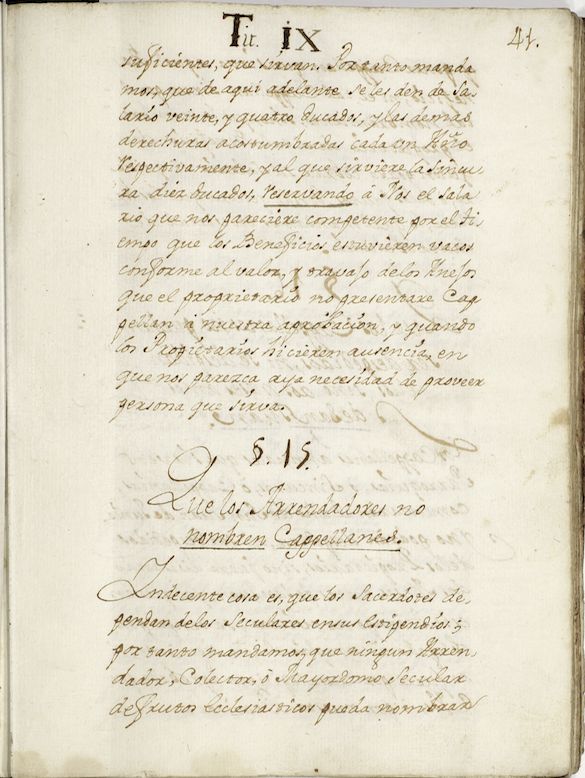 Tit. IX
41.
suficientes, que sirvan. Por tanto manda
mos, que de aqui adelante se les den de Sa-
lario veinte, y quatro ducados, y las demas
derechuras acostumbradas cada un
respectivamente, y al que sirviere la
ra diez ducados, reservando à Nos el sala
rio que nos pareciere competente por el ti-
empo que los Beneficios estuvieren vacos
conforme al valor, y travajo de los Anejos
que el proprietario no presentare Cap
pellan à nuestra aprobacion, y quando
los Propietarios hicieren ausencia, en
que nos parezca aya necesidad de proveer
persona que sirva.
§. 15.
Que los Arrendadores no
nombren Cappellanes.
Indecente cosa es, que los Sacerdotes de-
pendan de los Seculares en sus Estipendios;
por tanto mandamos, que ningun Arren-
dador, Colector, ò Mayordomo Secular
de frutos Ecclesiasticos pueda nombrar